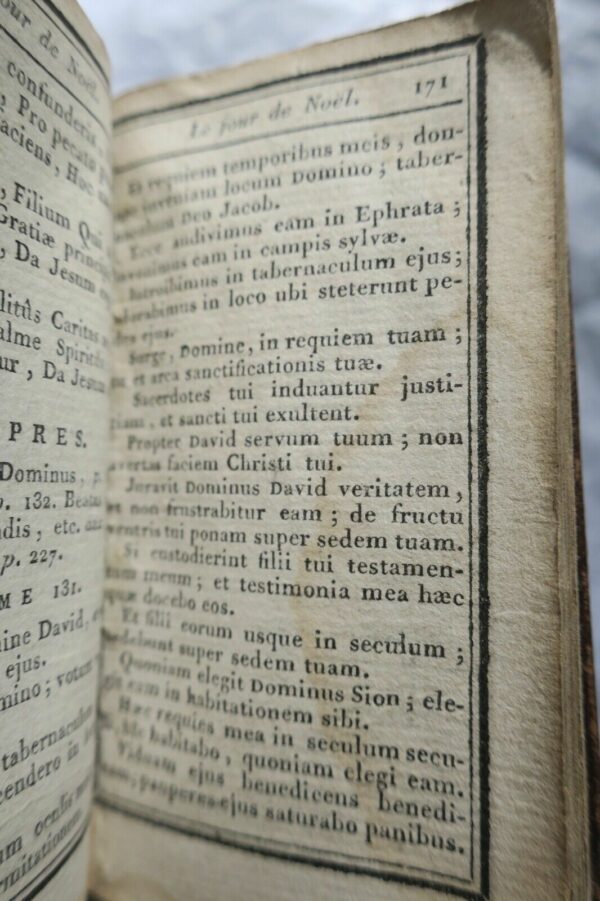 our de Noël.
confunderis
, Pro pecato
faciens, Hoc
, Filium Qui
Gratiæ princi
, Da Jesum
litûs Caritas
alme Spirit
ur, Da Jesum
PRES.
Dominus, p.
p. 132. Beatus
dis, etc.
p. 227.
ME 131.
ine David,
ejus.
mino; votum
tabernaculum
endero in
um oculis
rmitationem
Le jour de Noël. 171
Et requiem temporibus meis, don-
inveniam locum Domino; taber-
Deo Jacob.
Ecce audivimus eam in Ephrata;
eam in campis sylvæ.
Introibimus in tabernaculum ejus;
adorabimus in loco ubi steterunt pe-
ejus.
Surge, Domine, in requiem tuam;
et arca sanctificationis tuæ.
Sacerdotes tui induantur justi-
tiam, et sancti tui exultent.
Propter David servum tuum; non
avertas faciem Christi tui.
Juravit Dominus David veritatem,
et non frustrabitur eam; de fructu
ventris tui ponam super sedem tuam.
Si custodierint filii tui testamen-
tum meum; et testimonia mea hæc
quæ docebo eos.
Et filii eorum usque in seculum;
sedebunt super sedem tuam.
Quoniam elegit Dominus Sion; ele-
git eam in habitationem sibi.
Hæc requies mea in seculum secu-
hic habitabo, quoniam elegi eam.
Viduam ejus benedicens benedi-
pauperes ejus saturabo panibus.